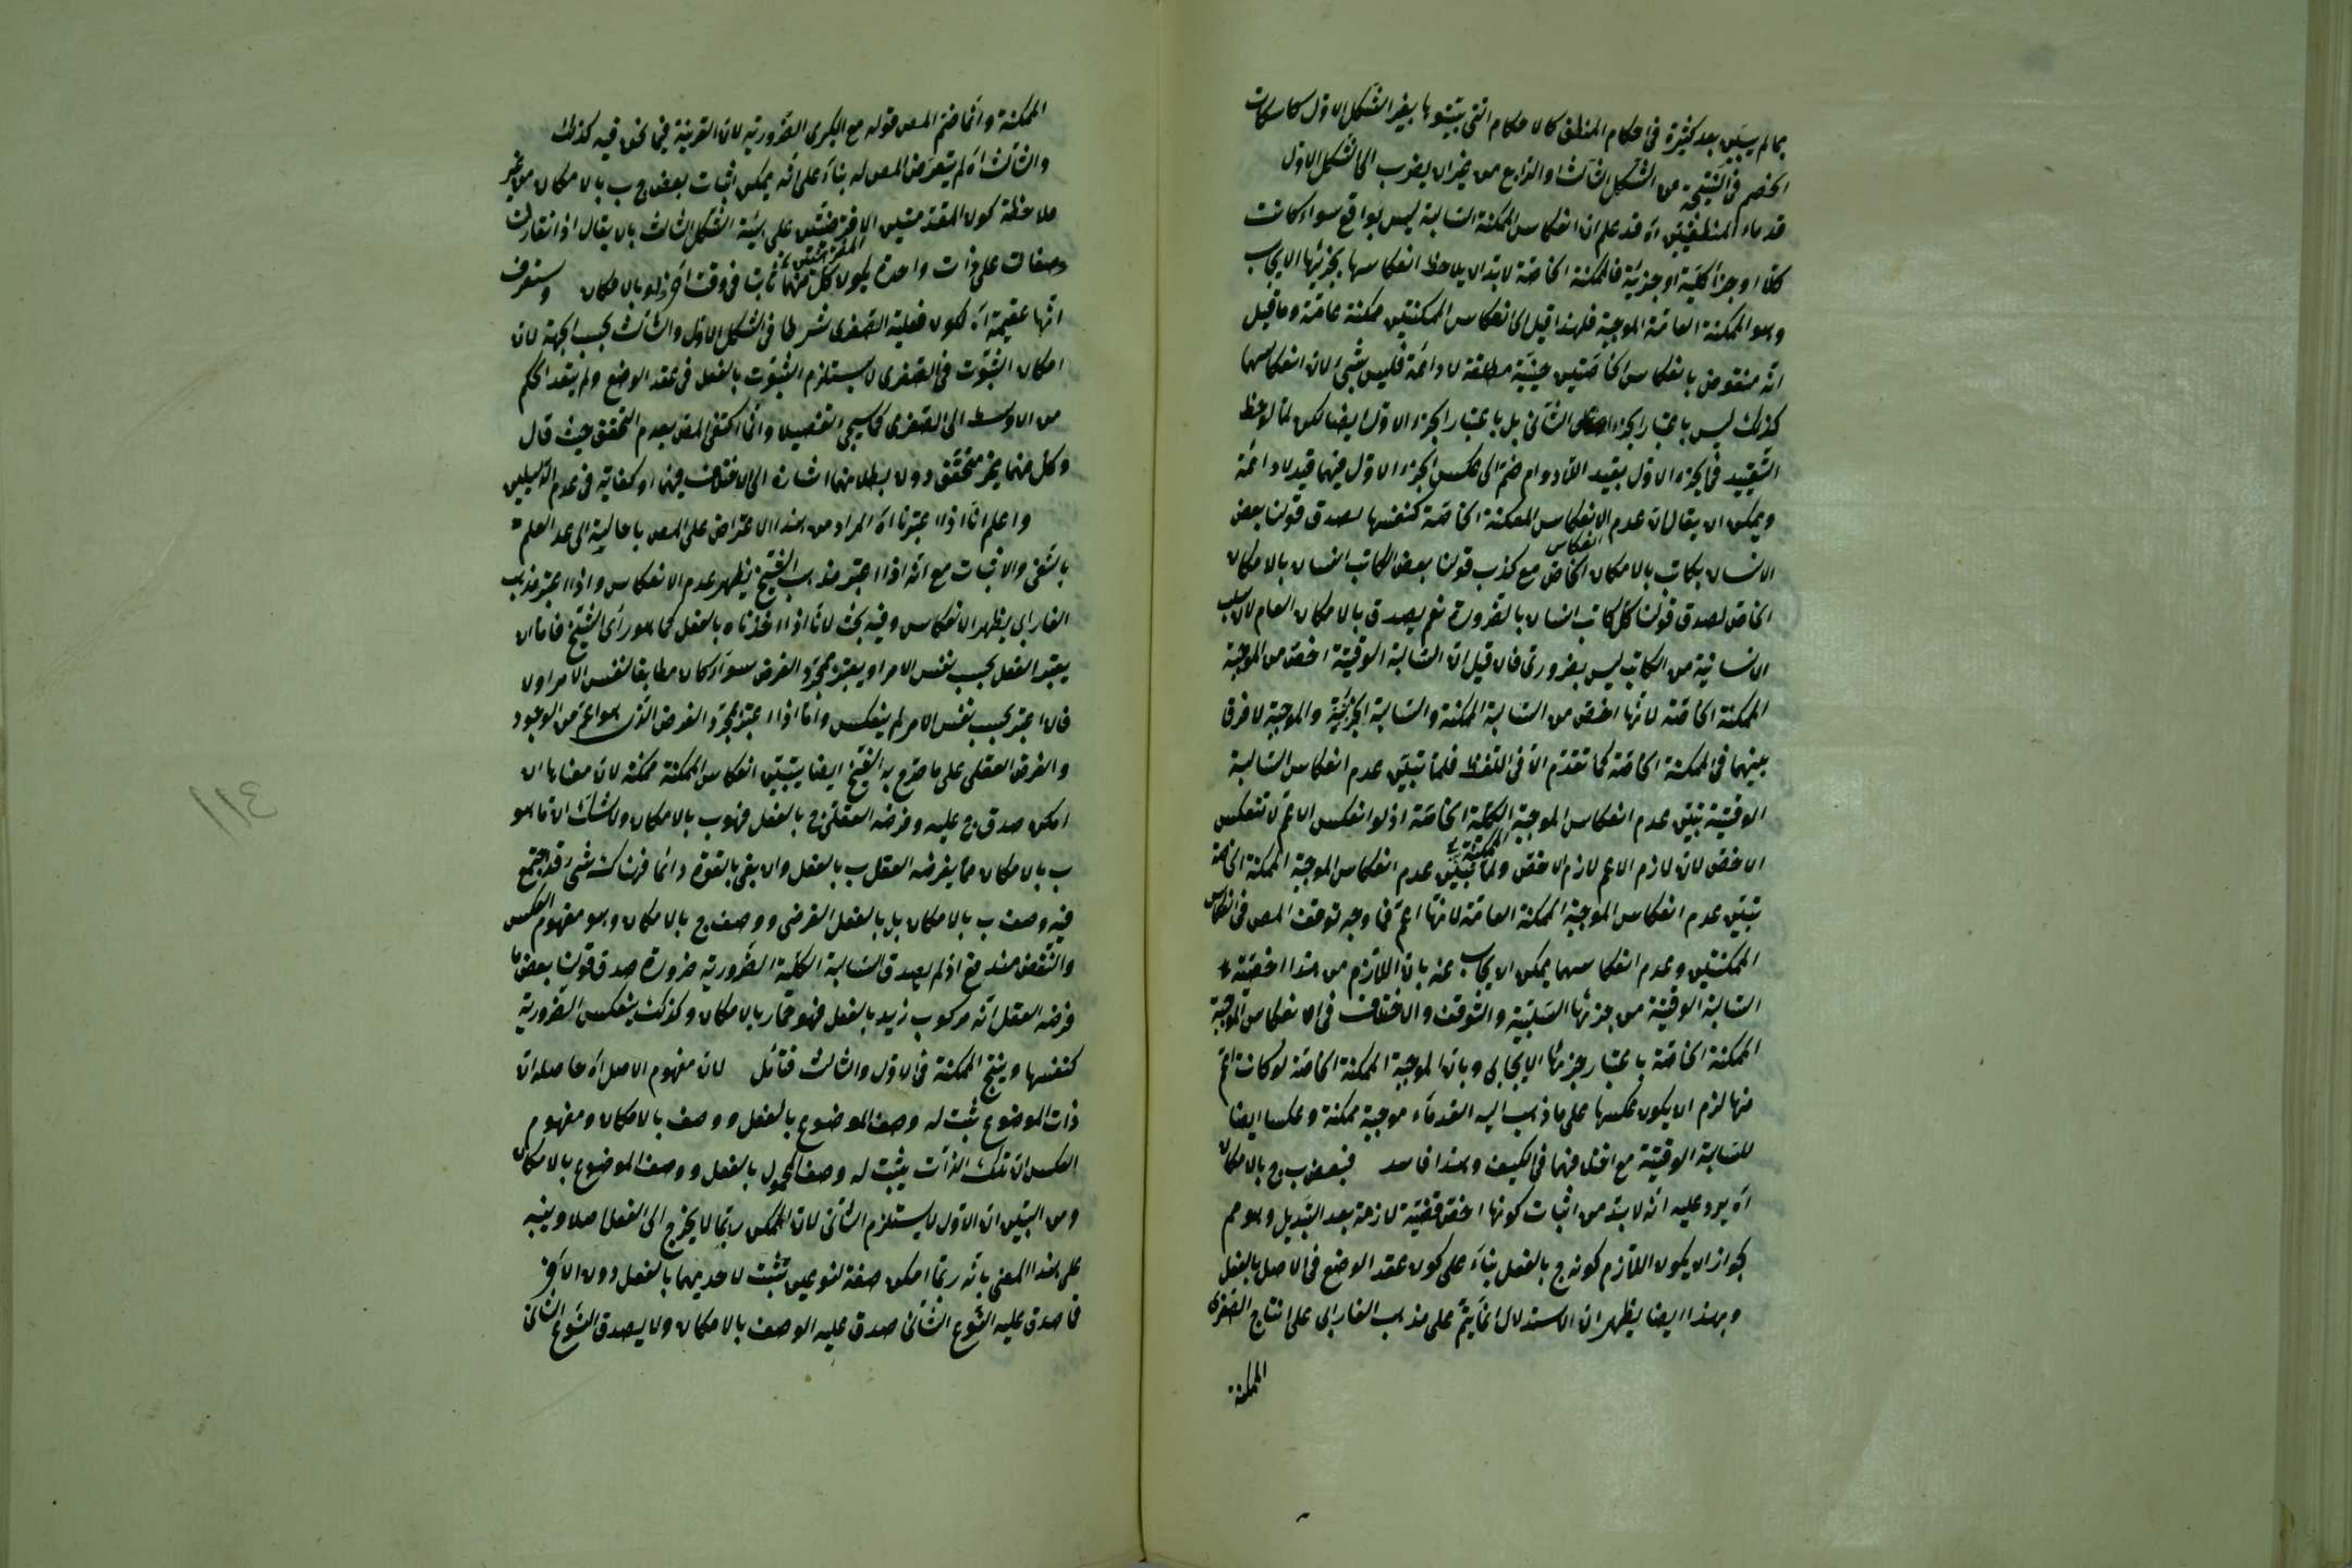 بما لم يتبين بعد كثيرة في احكام المنطق كالاحكام التي يثبتوها بغير الشكل الاول كاسكات
الخصم في النتيجة من الشكل الثالث او الرابع من غير ان يضرب الى الشكل الاول
قدماء المنطقيين اه قد علم ان انعكاس الممكنة السالبة ليس بواقع سواء كانت
كلا او جزأ كلية او جزئية فالممكنة الخاصة لابد ان يلاحظ انعكاسها بجزئها الايجاب
وهو الممكنة العامة الموجبة فلهذا قيل ان انعكاس الممكنتين ممكنة عامة وما قيل
انه منقوض بانعكاس الخاصتين حينية مطلقة لا دائمة فليس بشئ لان انعكاسهما
كذلك ليس باعتبار الجزء الثاني بل باعتبار الجزء الاول ايضا لكن لما لوحظ
التقييد في الجزء الاول بقيد اللادوام ضم الى عكس الجزء الاول فيهما قيد لا دائمة
ويمكن ان يقال ان عدم الانعكاس الممكنة الخاصة كنفسها لصدق قولنا بعض
الانسان بكاتب بالامكان الخاص مع كذب قولنا بعض الكاتب انسان بالامكان
الخاص لصدق قولنا كل كاتب انسان بالضرورة نعم يصدق بالامكان العام لان سلب
الانسانية من الكاتب ليس بضروري فان قيل ان السالبة الوقتية اخص من الموجبة
الممكنة الخاصة لانها اخص من السالبة الممكنة والسالبة الجزئية والموجبة لا فرق
بينهما في الممكنة الخاصة كما تقدم الا في اللفظ فلما تبين عدم انعكاس السالبة
الوقتية تبين عدم انعكاس الموجبة الممكنة الخاصة اذ لو انعكس الاعم لانعكس
الاخص لان لازم الاعم لازم الاخص ولما تبين عدم انعكاس الموجبة الممكنة الخاصة
تبين عدم انعكاس الموجبة الممكنة العامة لانها اعم فما وجه توقف المص في انعكاس
الممكنتين وعدم انعكاسهما يمكن ان يجاب عنه بان اللازم من هذا اخصية
السالبة الوقتية من جزئها السلبية والتوقف والاختلاف في انعكاس الموجبة
الممكنة الخاصة باعتبار جزئها الايجابي وبان الموجبة الممكنة الخاصة لو كانت اعم
منها لزم ان يكون عكسها على ما ذهب اليه القدماء موجبة ممكنة وعكسا ايضا
للسالبة الوقتية مع اختلافهما في الكيف وهذا فاسد فبعض ب ج بالامكان
اه يرد عليه انه لا بد من اثبات كونها اخص قضية لازمة بعد التبديل وهو مم
لجواز ان يكون اللازم كونه ج بالفعل بناء على كون عقد الوضع في الاصل بالفعل
وبهذا ايضا يظهر ان الاستدلال انما يتم على مذهب الفارابي على انتاج الصغرى
الممكنة
الممكنة وانما ضم المص قوله مع الكبرى الضرورية لان القرينة فيما نحن فيه كذلك
والثالث اه لم يتعرض المص له بناء على انه يمكن اثبات بعض ج ب بالامكان من غير
ملاحظة كون المقدمتين الافتراضيتين على هيئة الشكل الثالث بان يقال اذا تقارنت
صفات على ذات واحدة يكون كل منهما ثابت في وقت اخر ولو بالامكان وستعرف
انها عقيمة اه لكون فعلية الصغرى شرطا في الشكل الاول والثالث بحسب الجهة لان
امكان الثبوت في الصغرى لا يستلزم الثبوت بالفعل في عقد الوضع ولم يتعد الحكم
من الاوسط الى الصغرى كما سيجئ التفصيل وانما اكتفى المص بعدم التحقق حيث قال
وكل منهما غير متحقق دون بطلانهما اشارة الى الاختلاف فيهما وكفاية في عدم الدليلين
واعلم انا اذا اعتبرنا اه المراد من هذا الاعتراض على المص باحالته الى عدم العلم
بالنفي والاثبات مع انه اذا اعتبر مذهب الشيخ يظهر عدم الانعكاس واذا اعتبر مذهب
الفارابي يظهر الانعكاس وفيه بحث لانا اذا اخذناه بالفعل كما هو رأى الشيخ فاما ان
يعتبر الفعل بحسب نفس الامر او يعتبر بمجرد الفرض سواء كان مطابقا لنفس الامر او لا
فان اعتبر بحسب نفس الامر لم ينعكس واما اذا اعتبر بمجرد الفرض الذي هو اعم من الوجود
والفرض العقلي على ما صرح به الشيخ ايضا يتبين انعكاس الممكنة ممكنة لان معناها ان
امكن صدق ج عليه وفرضه العقل ج بالفعل فهو ب بالامكان ولا شك ان ما هو
ب بالامكان مما يفرضه العقل ب بالفعل وان بقي بالقوة دائما فهناك شئ قد اجتمع
فيه وصف ب بالامكان بل بالفعل الفرضي ووصف ج بالامكان وهو مفهوم العكس
والنقض مندفع اذ لم يصدق السالبة الكلية الضرورية ضرورة صدق قولنا بعض ما
فرضه العقل انه مركوب زيد بالفعل فهو حمار بالامكان وكذلك ينعكس الضرورية
كنفسها وينتج الممكنة في الاول والثالث فتأمل لان مفهوم الاصل اه حاصله ان
ذات الموضوع ثبت له وصف الموضوع بالفعل ووصف بالامكان ومفهوم
العكس ان تلك الذات يثبت له وصف المحمول بالفعل ووصف الموضوع بالامكان
ومن البين ان الاول لا يستلزم الثاني لان الممكن ربما لا يخرج الى الفعل اصلا وينبه
على هذا المعنى بانه ربما امكن صفة لنوعين تثبت لاحديهما بالفعل دون الآخر
فما صدق عليه النوع الثاني صدق عليه الوصف بالامكان ولا يصدق النوع الثاني
١١٤